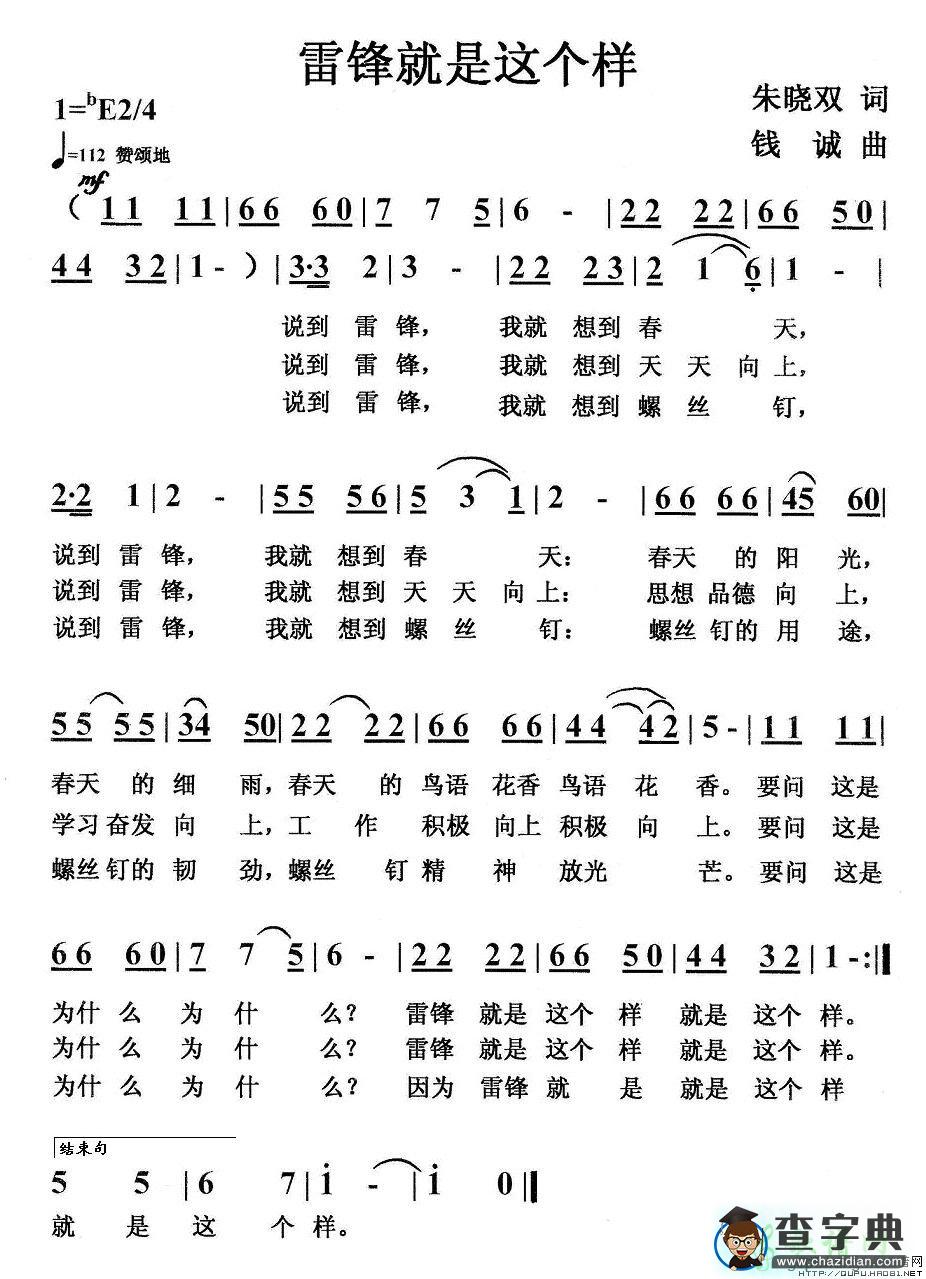 雷锋就是这个样
1=ᵇE2/4
朱晓双 词
♩=112 赞颂地
钱 诚 曲
mf
( 1 1 1 1 | 6 6 6 0 | 7 7 5 | 6 - | 2 2 2 2 | 6 6 5 0 |
4 4 3 2 | 1 - ) | 3·3 2 | 3 - | 2 2 2 3 | 2 1 6̣ | 1 - |
说到 雷 锋, 我就 想到 春 天,
说到 雷 锋, 我就 想到 天 天 向 上,
说到 雷 锋, 我就 想到 螺 丝 钉,
2·2 1 | 2 - | 5 5 5 6 | 5 3 1 | 2 - | 6 6 6 6 | 4 5 6 0 |
说到 雷 锋, 我就 想到 春 天: 春天 的 阳 光,
说到 雷 锋, 我就 想到 天 天 向 上: 思想 品德 向 上,
说到 雷 锋, 我就 想到 螺 丝 钉: 螺丝 钉的 用 途,
5 5 5 5 | 3 4 5 0 | 2 2 2 2 | 6 6 6 6 | 4 4 4 2 | 5 - | 1 1 1 1 |
春天 的 细 雨, 春天 的 鸟语 花香 鸟语 花 香。 要问 这是
学习 奋发 向 上, 工 作 积极 向上 积极 向 上。 要问 这是
螺丝 钉的 韧 劲, 螺丝 钉 精 神 放光 芒。 要问 这是
6 6 6 0 | 7 7 5 | 6 - | 2 2 2 2 | 6 6 5 0 | 4 4 3 2 | 1 - :||
为什 么 为 什 么? 雷锋 就是 这个 样 就是 这个 样。
为什 么 为 什 么? 雷锋 就是 这个 样 就是 这个 样。
为什 么 为 什 么? 因为 雷锋 就 是 就是 这个 样
结束句
5 5 | 6 7 | 1̇ - | 1̇ 0 ||
就 是 这 个 样。
查字典
www.chazidian.com